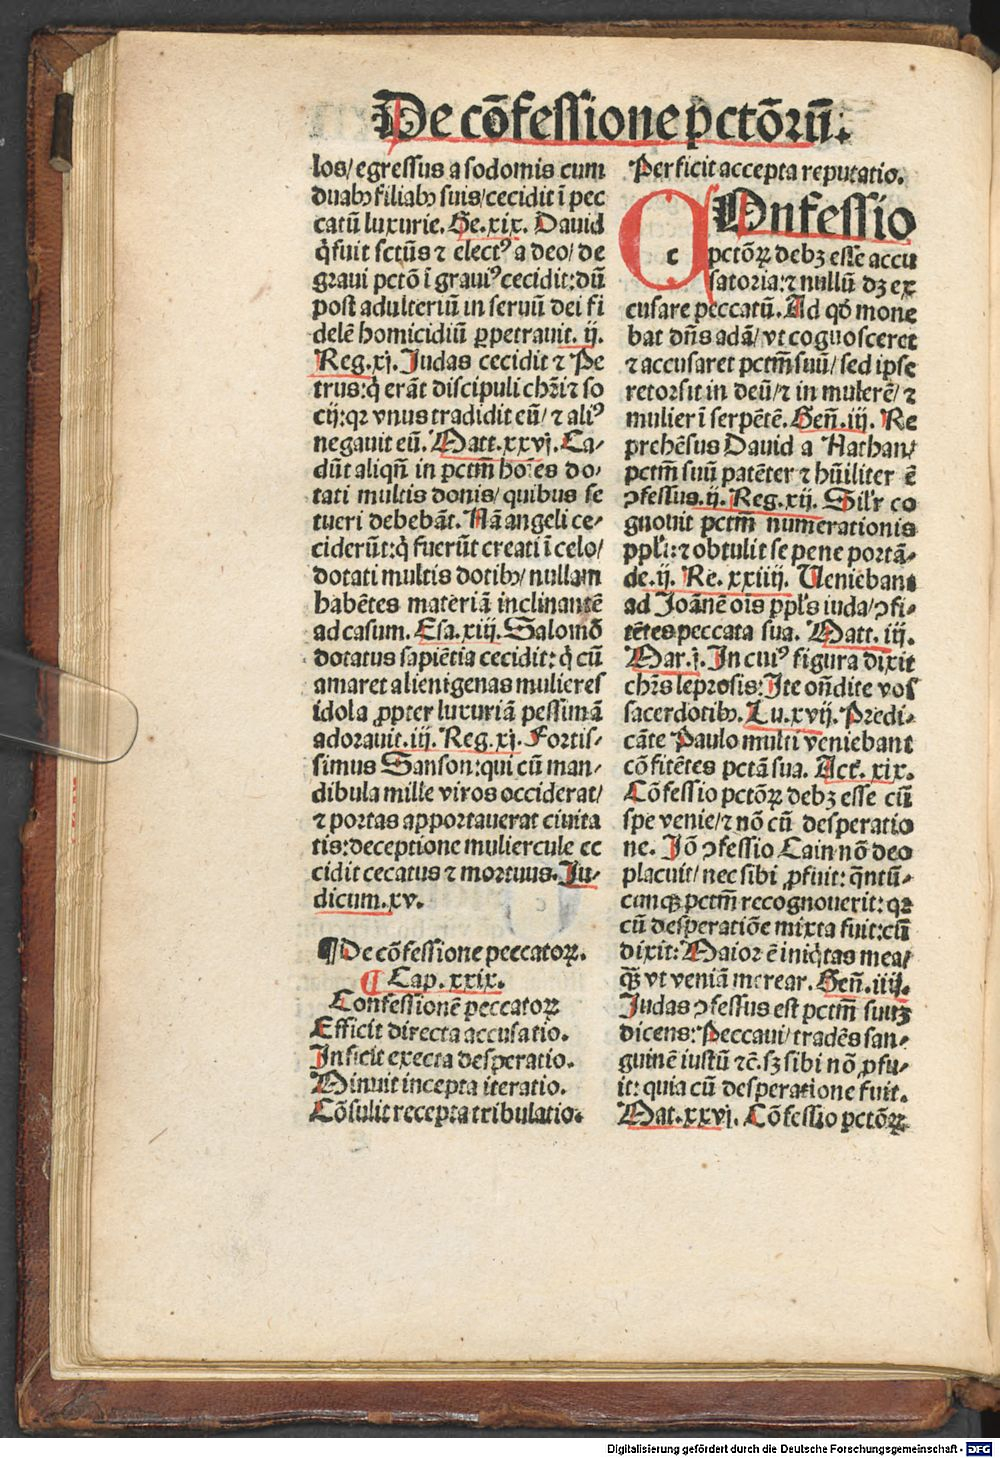 De cōfessione pctōꝛū.
los/egressus a sodomis cum
duabꝫ filiabꝫ suis/cecidit ī pec
catū luxurie. Ge.xix. Dauid
q̇ fuit sctūs ⁊ elect⁹ a deo/de
graui pctō ī graui⁹ cecidit:dū
post adulteriū in seruū dei fi
delē homicidiū ꝑpetrauit. ij.
Reg.xj. Judas cecidit ⁊ Pe
trus:q̇ erāt discipuli chꝛi ⁊ so
cij:qꝛ vnus tradidit eū/⁊ ali⁹
negauit eū. Matt.xxvj. Ca-
dūt aliqn̄ in pctm̄ hoīes do-
tati multis donis/quibus se
tueri debebāt. Nā angeli ce-
ciderūt:q̇ fuerūt creati ī celo/
dotati multis dotibꝫ/nullam
habētes materiā inclinantē
ad casum. Esa.xiij. Salomō
dotatus sapiētia cecidit:q̇ cū
amaret alienigenas mulieres
idola ꝓpter luxuriā pessimā
adorauit.iij. Reg.xj. Fortis-
simus Sanson:qui cū man-
dibula mille viros occiderat/
⁊ portas apportauerat ciuita
tis:deceptione muliercule ce
cidit cecatus ⁊ moꝛtuus. Ju-
dicum.xv.
¶De cōfessione peccatoꝝ.
¶ Cap.xxix.
Confessionē peccatoꝝ
Efficit directa accusatio.
Inficit execta desperatio.
Minuit incepta iteratio.
Cōsulit recepta tribulatio.
Perficit accepta reputatio.
c Onfessio
pctōꝝ debꝫ esse accu
satoria:⁊ nullū dꝫ ex
cusare peccatū. Ad qď mone
bat dn̄s adā/vt cognosceret
⁊ accusaret pctm̄ suū/sed ipse
retorsit in deū/⁊ in mulierē/⁊
mulier ī serpētē. Gen̄.iij. Re
prehēsus Dauid a Nathan/
pctm̄ suū patēter ⁊ hūiliter ē
ꝯfessus.ij. Reg.xij. Silꝛ co
gnouit pctm̄ numerationis
ppl̄i:⁊ obtulit se pene portā-
de.ij. Re. xxiiij. Ueniebant
ad Joānē oīs ppl̄s iuda/ꝯfi-
tētes peccata sua. Matt.iij.
Mar.j. In cui⁹ figura dixit
chꝛs leprosis:Ite on̄dite vos
sacerdotibꝫ. Lu.xvij. Predi-
cāte Paulo multi veniebant
cōfitētes pctā sua. Act̄. xix.
Cōfessio pctōꝝ debꝫ esse cū
spe venie/⁊ nō cū desperatio
ne. Jō ꝯfessio Cain nō deo
placuit/nec sibi ꝓfuit:q̄ntū-
cunqꝫ pctm̄ recognouerit:qꝛ
cū desperatiōe mixta fuit:cū
dixit:Maior ē iniq̇tas mea/
qꝫ̄ vt veniā merear. Gen̄.iiij.
Judas ꝯfessus est pctm̄ suuꝫ
dicens:Peccaui/tradēs san-
guinē iustū ⁊c̄. sꝫ sibi nō ꝓfu-
it:quia cū desperatione fuit.
Mat.xxvj. Cōfessio pctōꝝ
Digitalisierung gefördert durch die Deutsche Forschungsgemeinschaft - DFG